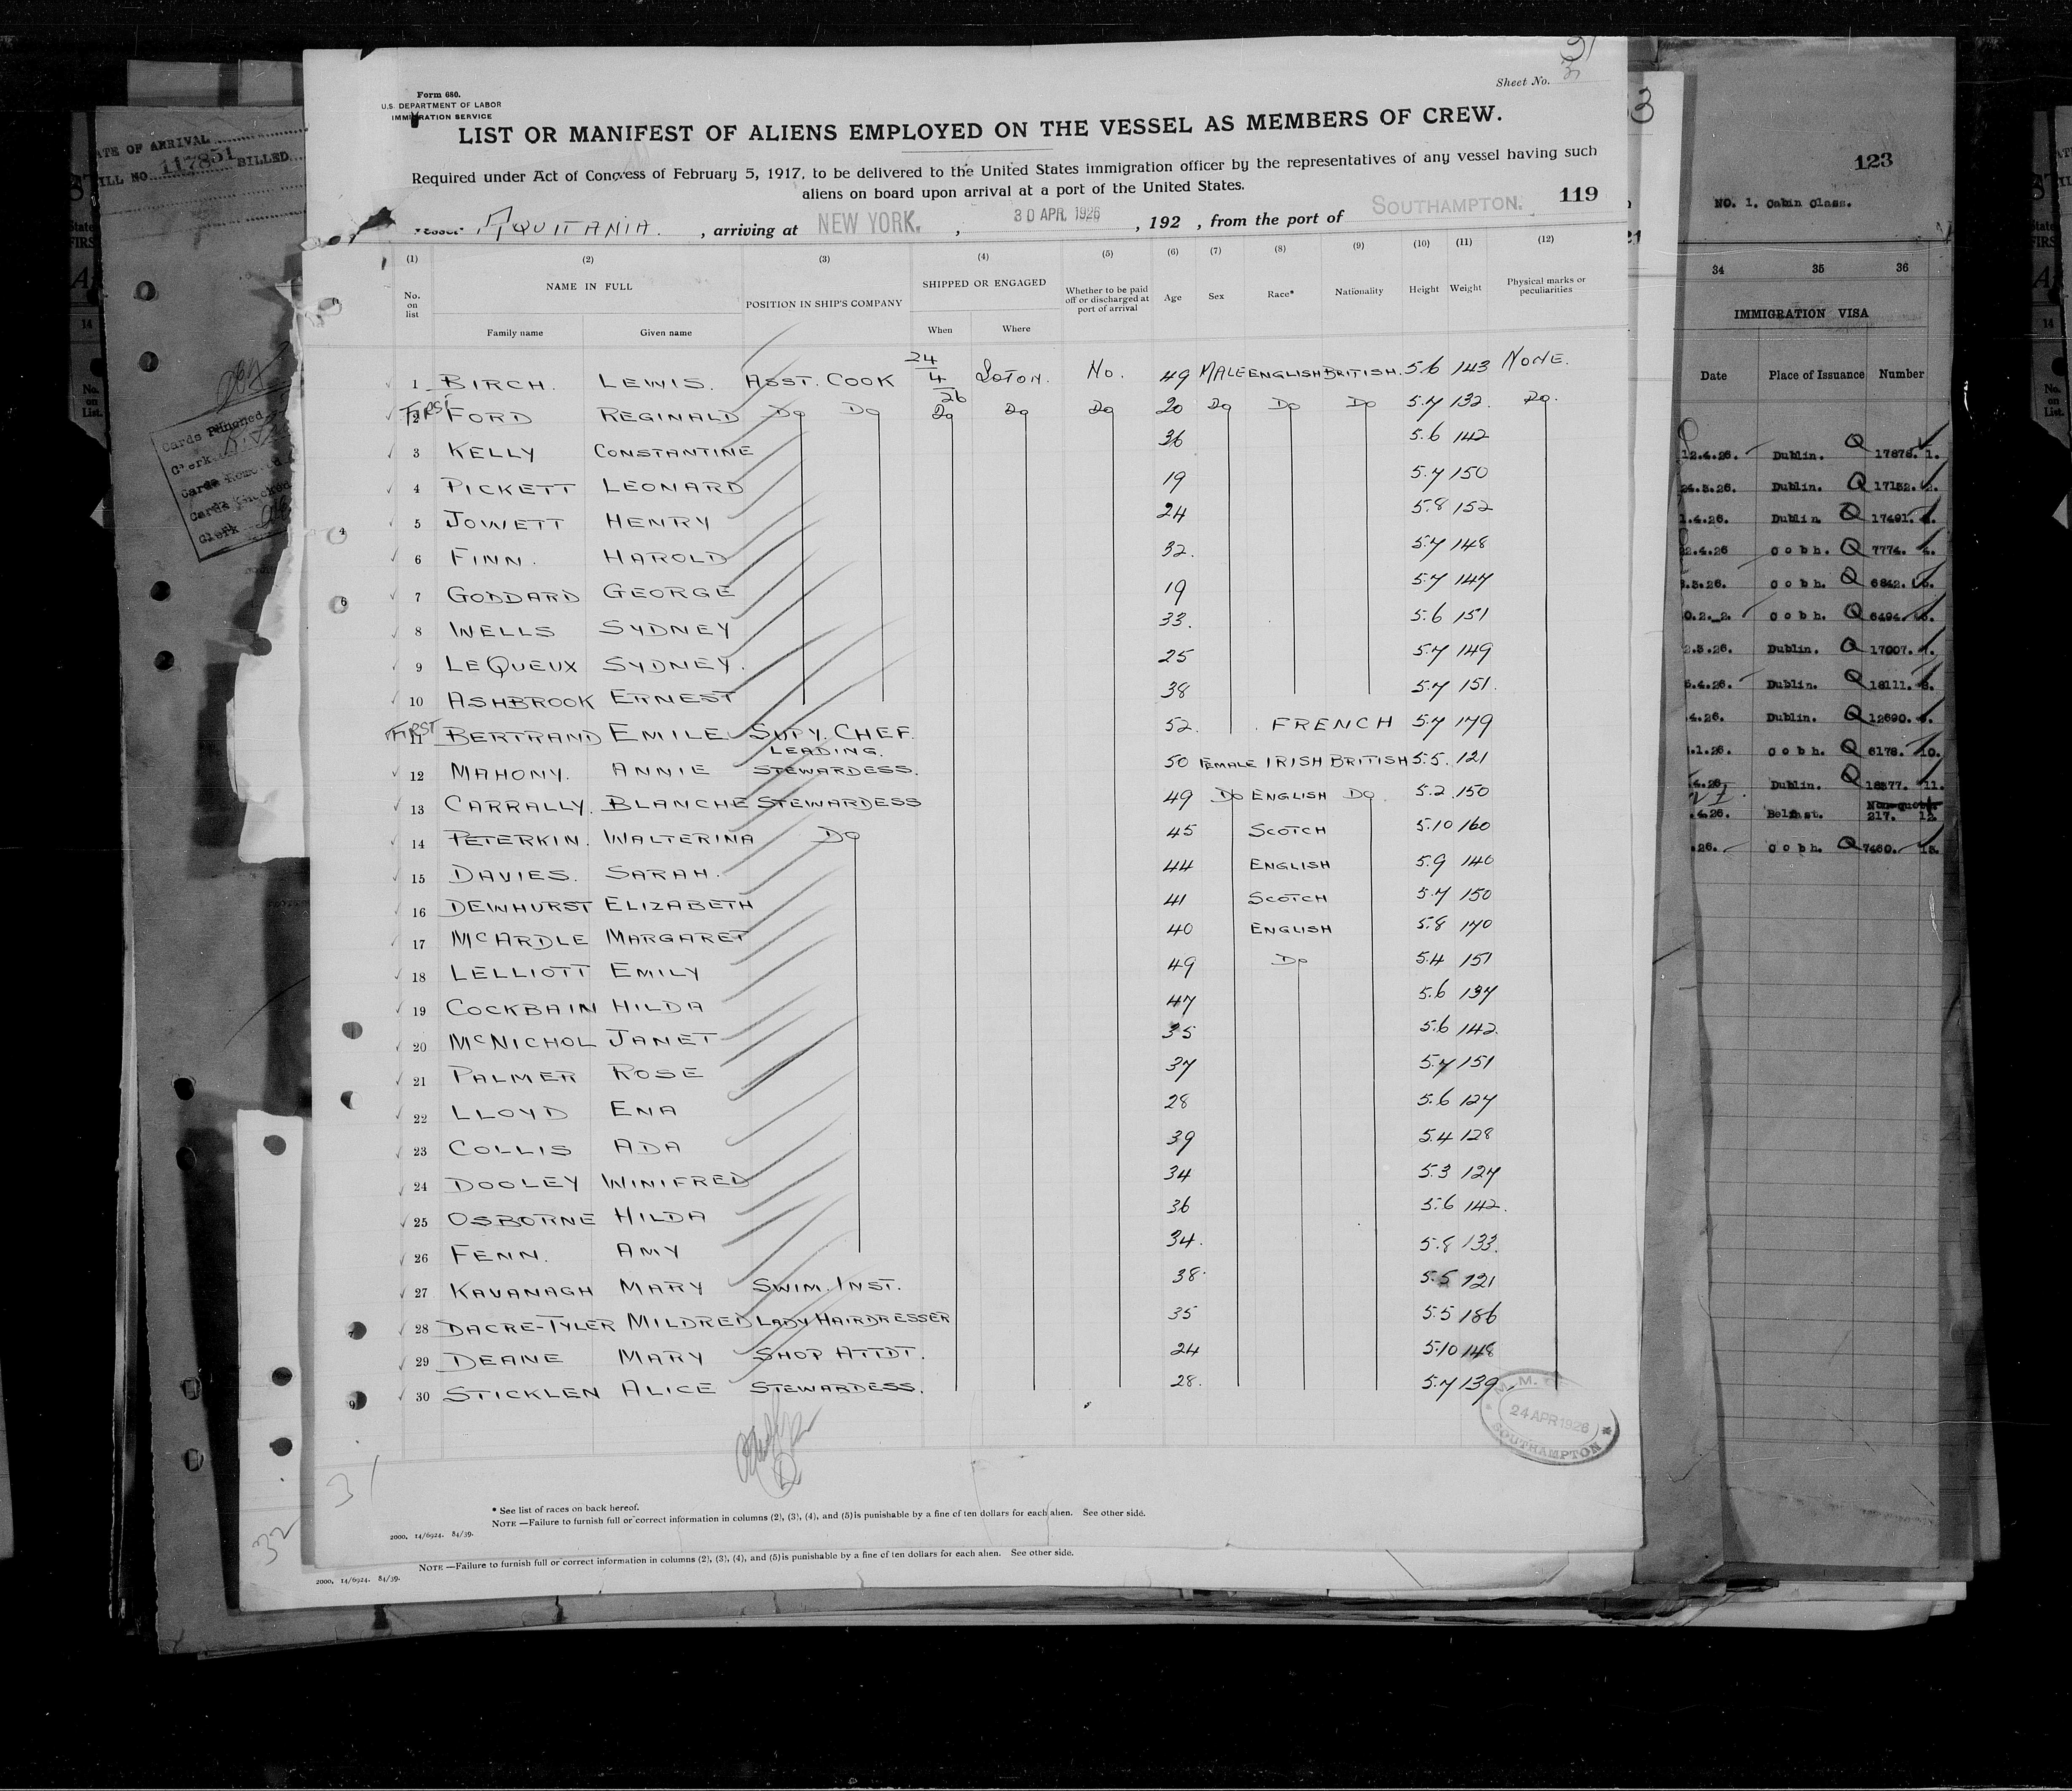 Sheet No. 31
Form 680.
U.S. DEPARTMENT OF LABOR
IMMIGRATION SERVICE
LIST OR MANIFEST OF ALIENS EMPLOYED ON THE VESSEL AS MEMBERS OF CREW.
Required under Act of Congress of February 5, 1917, to be delivered to the United States immigration officer by the representatives of any vessel having such
aliens on board upon arrival at a port of the United States.
119
Vessel AQUITANIA. , arriving at NEW YORK. , 30 APR 1926 , 192 , from the port of SOUTHAMPTON.
(1) (2) (3) (4) (5) (6) (7) (8) (9) (10) (11) (12)
No. on list NAME IN FULL POSITION IN SHIP'S COMPANY SHIPPED OR ENGAGED Whether to be paid off or discharged at port of arrival Age Sex Race* Nationality Height Weight Physical marks or peculiarities
Family name Given name When Where
1 BIRCH. LEWIS. ASST. COOK 24/4/26 SOTON. NO. 49 MALE ENGLISH BRITISH. 5.6 143 NONE.
FIRST 2 FORD REGINALD DO DO DO DO DO 20 DO DO DO 5.7 132. DO.
3 KELLY CONSTANTINE 36 5.6 142
4 PICKETT LEONARD 19 5.7 150
5 JOWETT HENRY 24 5.8 152
6 FINN. HAROLD 32. 5.7 148
7 GODDARD GEORGE 19 5.7 147
8 WELLS SYDNEY 33. 5.6 151
9 LEQUEUX SYDNEY. 25 5.7 149
10 ASHBROOK ERNEST 38 5.7 151.
FIRST 11 BERTRAND EMILE SUPY. CHEF. 52. FRENCH 5.7 179
12 MAHONY. ANNIE LEADING. STEWARDESS. 50 FEMALE IRISH BRITISH 5.5. 121
13 CARRALLY. BLANCHE STEWARDESS 49 DO ENGLISH DO 5.2. 150
14 PETERKIN. WALTERINA DO 45 SCOTCH 5.10 160
15 DAVIES. SARAH. 44 ENGLISH 5.9 140
16 DEWHURST ELIZABETH 41 SCOTCH 5.7 150
17 MCARDLE MARGARET 40 ENGLISH 5.8 170
18 LELLIOTT EMILY 49 DO 5.4 151
19 COCKBAIN HILDA 47 5.6 137
20 MCNICHOL JANET 35 5.6 142.
21 PALMER ROSE 37 5.7 151
22 LLOYD ENA 28 5.6 127
23 COLLIS ADA 39 5.4 128
24 DOOLEY WINIFRED 34 5.3 127
25 OSBORNE HILDA 36 5.6 142.
26 FENN. AMY 34. 5.8 133.
27 KAVANAGH MARY SWIM. INST. 38. 5.5 121
28 DACRE-TYLER MILDRED LADY HAIRDRESSER 35 5.5 186
29 DEANE MARY SHOP ATTDT. 24 5.10 148
30 STICKLEN ALICE STEWARDESS. 28. 5.7 139
24 APR 1926
SOUTHAMPTON
31
* See list of races on back hereof.
NOTE —Failure to furnish full or correct information in columns (2), (3), (4), and (5) is punishable by a fine of ten dollars for each alien. See other side.
2000. 14/6924. 84/39.
32
NOTE —Failure to furnish full or correct information in columns (2), (3), (4), and (5) is punishable by a fine of ten dollars for each alien. See other side.
2000. 14/6924. 84/39.
DATE OF ARRIVAL
BILL NO. 117851 BILLED
Cards Punched
Clerk
Cards Removed
Cards Checked
Clerk
123
NO. 1. Cabin Class.
34 35 36
IMMIGRATION VISA
Date Place of Issuance Number
12.4.26. Dublin. Q 17878. 1.
24.3.26. Dublin. Q 17152. 2.
1.4.26. Dublin. Q 17491. 3.
2.4.26 Cobh. Q 7774. 4.
.3.26. Cobh. Q 6842. 5.
0.2._2. Cobh. Q 6494. 6.
2.3.26. Dublin. Q 17007. 7.
5.4.26. Dublin. Q 18111. 8.
.4.26. Dublin. Q 12690. 9.
.1.26. Cobh. Q 6178. 10.
.4.26. Dublin. Q 18377. 11.
Non-quota
.4.26. Belfast. 217. 12.
.26. Cobh. Q 7460. 13.